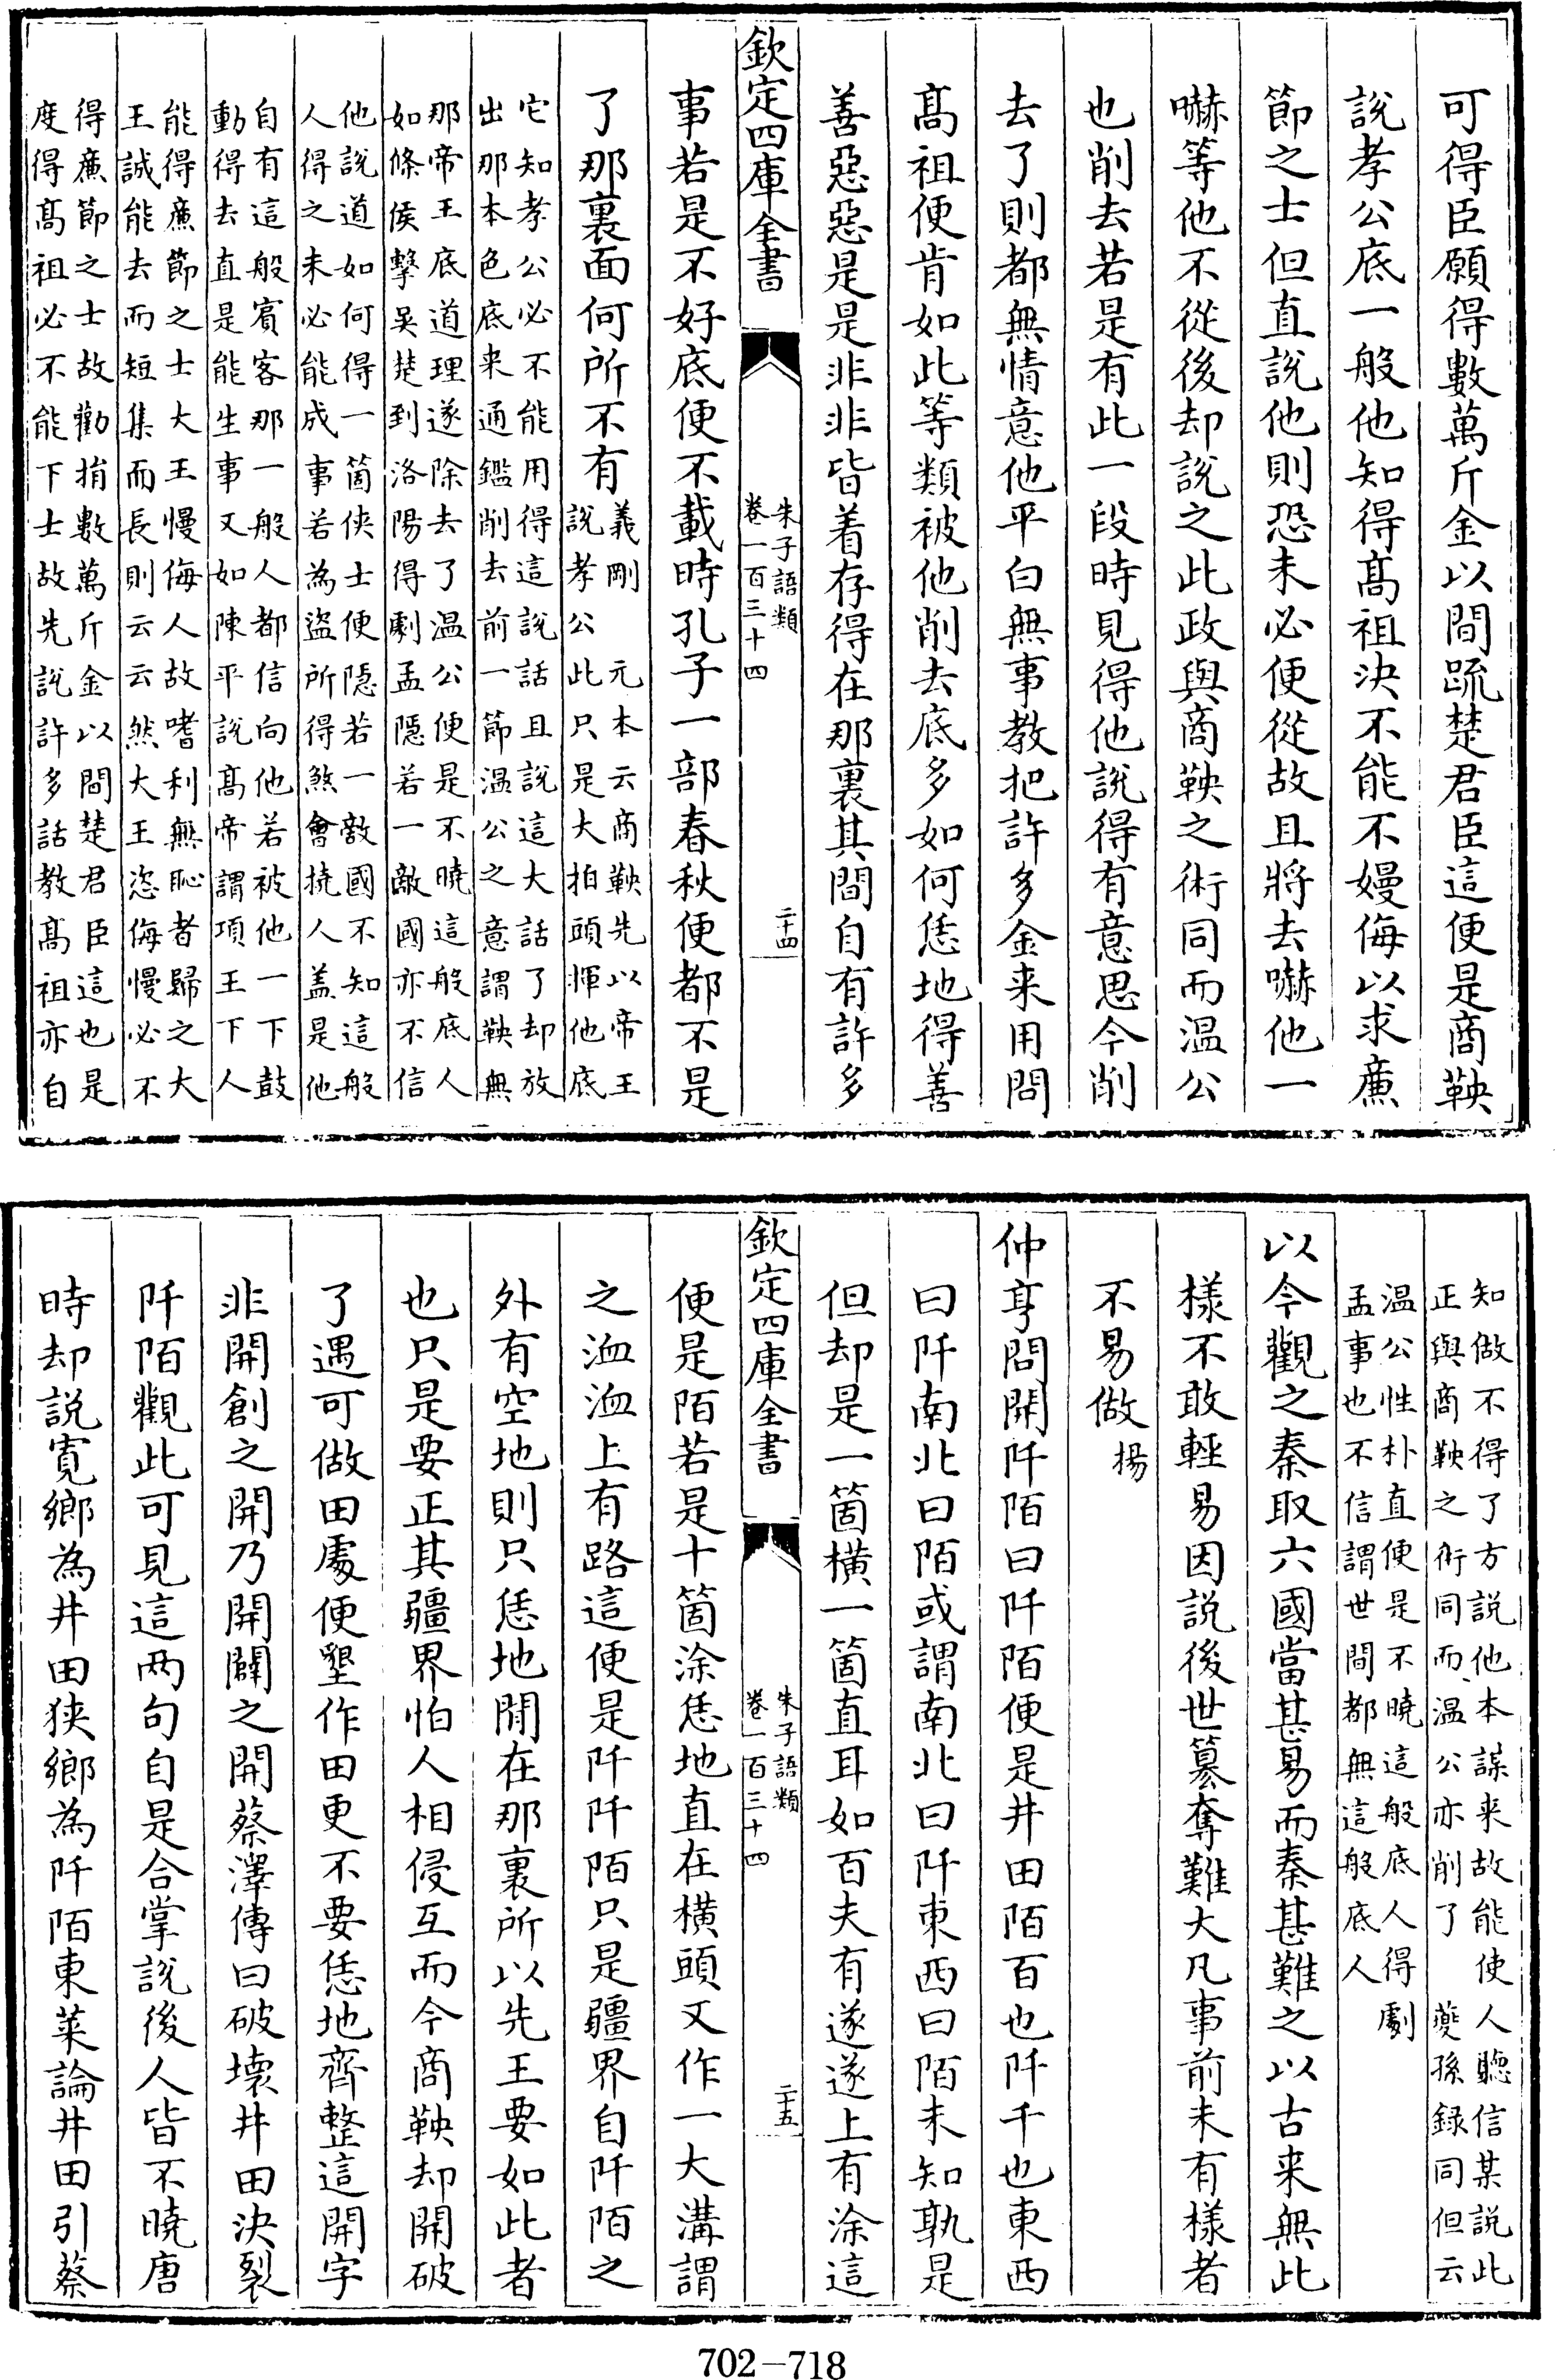 可得臣願得數萬斤金以間䟽楚君臣這便是商鞅
說孝公底一般他知得髙祖決不能不嫚侮以求㢘
節之士但直說他則恐未必便從故且將去嚇他一
嚇等他不從後却說之此政與商鞅之術同而温公
也削去若是有此一段時見得他說得有意思今削
去了則都無情意他平白無事教把許多金来用問
髙祖便肯如此等類被他削去底多如何恁地得善
善惡惡是是非非皆着存得在那裏其間自有許多
欽定四庫全書
朱子語類
卷一百三十四
二十四
事若是不好底便不載時孔子一部春秋便都不是
了那裏面何所不有
義剛 元本云商鞅先以帝王
說孝公此只是大拍頭揮他底
它知孝公必不能用得這說話且說這大話了却放
出那本色底来通鑑削去前一節温公之意謂鞅無
那帝王底道理遂除去了温公便是不曉這般底人
如條侯擊吳楚到洛陽得劇孟隱若一敵國亦不信
他說道如何得一箇俠士便隱若一敵國不知這般
人得之未必能成事若為盜所得煞會撓人盖是他
自有這般賓客那一般人都信向他若被他一下鼓
動得去直是能生事又如陳平說髙帝謂項王下人
能得㢘節之士大王慢侮人故嗜利無恥者歸之大
王誠能去而短集而長則云云然大王恣侮慢必不
得㢘節之士故勸捐數萬斤金以間楚君臣這也是
度得髙祖必不能下士故先說許多話教髙祖亦自
知做不得了方説他本謀来故能使人聽信某説此
正與商鞅之術同而温公亦削了 䕫孫録同但云
温公性朴直便是不曉這般底人得劇
孟事也不信謂世間都無這般底人
以今觀之秦取六國當甚易而秦甚難之以古来無此
様不敢輕易因説後世簒奪難大凡事前未有様者
不易做
揚
仲亨問開阡陌曰阡陌便是井田陌百也阡千也東西
曰阡南北曰陌或謂南北曰阡東西曰陌未知孰是
但却是一箇横一箇直耳如百夫有遂遂上有涂這
欽定四庫全書
朱子語類
卷一百三十四
二十五
便是陌若是十箇涂恁地直在横頭又作一大溝謂
之洫洫上有路這便是阡阡陌只是疆界自阡陌之
外有空地則只恁地閒在那裏所以先王要如此者
也只是要正其疆界怕人相侵互而今商鞅却開破
了遇可做田處便墾作田更不要恁地齊整這開字
非開創之開乃開闢之開蔡澤傳曰破壊井田決裂
阡陌觀此可見這两句自是合掌説後人皆不曉唐
時却説寛鄉為井田狹鄉為阡陌東萊論井田引蔡
702-718